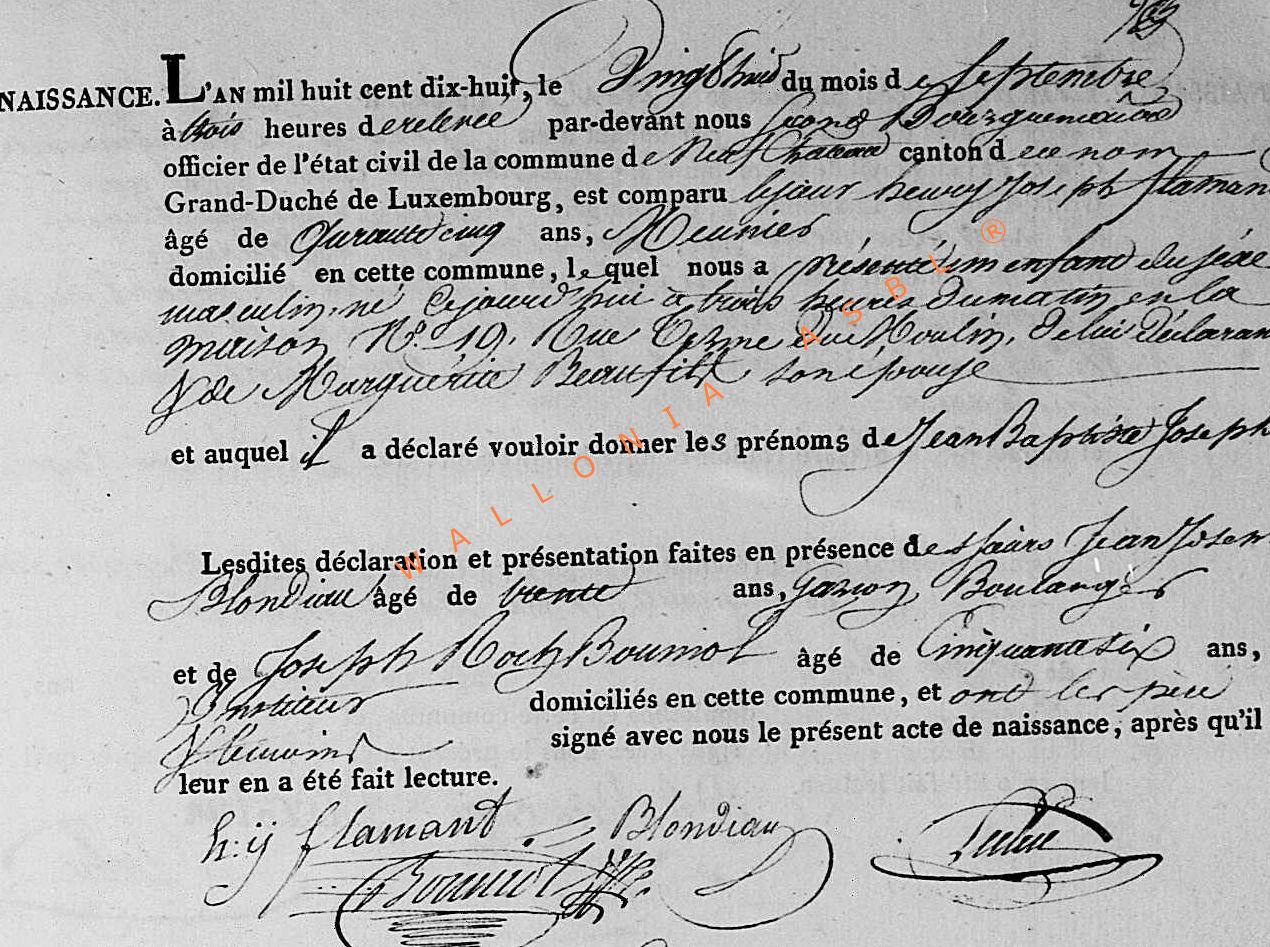 NAISSANCE. L'AN mil huit cent dix-huit, le Vingthuit du mois de Septembre
à trois heures de relevée par-devant nous
officier de l'état civil de la commune de Neufchateau canton de ce nom
Grand-Duché de Luxembourg, est comparu le sieur henry Joseph flamant
âgé de Quarantecinq ans, Meunier
domicilié en cette commune, lequel nous a présenté un enfant du sexe
masculin, né cejourd'hui à trois heures du matin en la
maison No. 19. Rue du Moulin, de lui déclarant
& de Marguérite Beaufils son épouse
et auquel il a déclaré vouloir donner les prénoms de Jean Baptiste Joseph
Lesdites déclaration et présentation faites en présence des Jean Joseph
Blondiau âgé de trente ans, Garçon Boulanger
et de Joseph Roch Bournot âgé de Cinquantesix ans,
Instituteur domiciliés en cette commune, et ont les père
& témoins signé avec nous le présent acte de naissance, après qu'il
leur en a été fait lecture.
h: ij flamant Blondiau
Bournot
WALLONIA ASBL ®